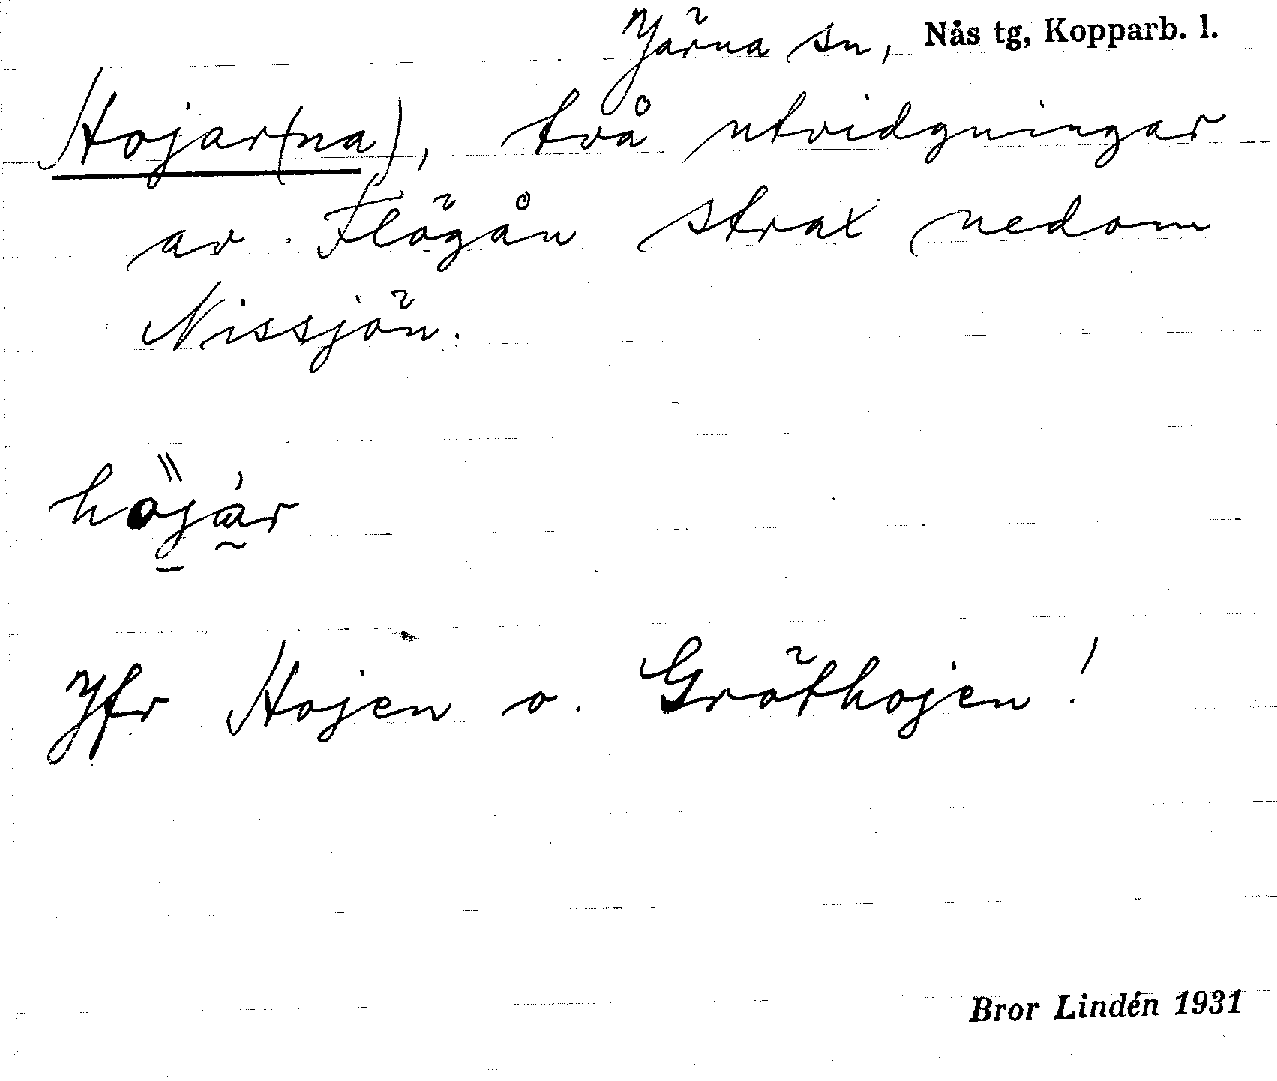 Järna sn, Nås tg, Kopparb. l.
Hojar(na), två utvidgningar
av Flögån strax nedom
Nissjön.
höjar
Jfr Hojen o. Gröthojen!
Bror Lindén 1931